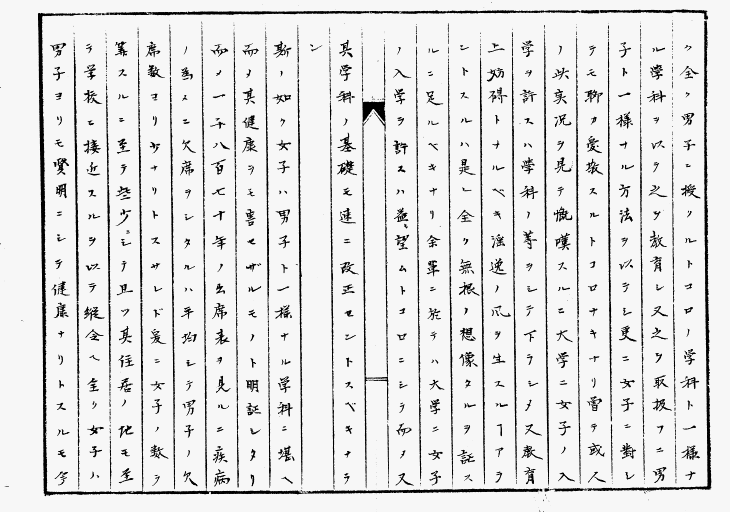 ク全ク男子ニ授クルトコロノ学科ト一様ナ
ル学科ヲ以テ之ヲ教育シ又之ヲ取扱フニ男
子ト一様ナル方法ヲ以テシ更ニ女子ニ対シ
テモ聊カ愛敬スルトコロナキナリ曽テ或人
ノ此実況ヲ見テ慨嘆スルニ大学ニ女子ノ入
学ヲ許スハ学科ノ等ヲシテ下ラシメ又教育
上妨碍トナルベキ淫逸ノ風ヲ生スルヿアラ
ントスルハ是レ全ク無根ノ想像タルヲ証ス
ルニ足ルベキナリ余輩ニ於テハ大学ニ女子
ノ入学ヲ許スハ益〻望ムトコロニシテ而メ又
其学科ノ基礎モ速ニ改正セントスベキナラ
ン
斯ノ如ク女子ハ男子ト一様ナル学科ニ堪ヘ
而メ其健康ヲモ害セザルモノト明証シタリ
而メ一千八百七十年ノ出席表ヲ見ルニ疾病
ノ為メニ欠席ヲシタルハ平均シテ男子ノ欠
席数ヨリ少ナリトスサレド爰ニ女子ノ数ヲ
算スルニ至テ些少ニシテ且ツ其住居ノ地モ至
テ学校ニ接近スルヲ以テ縦令ヘ全ク女子ハ
男子ヨリモ賢明ニシテ健康ナリトスルモ今